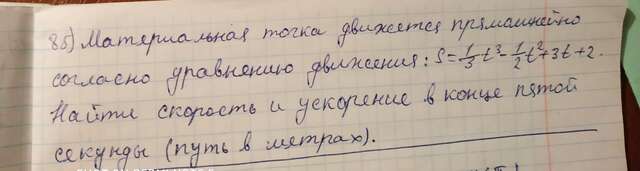 85) Материальная точка движется прямолинейно
согласно уравнению движения: S=1/3t³-1/2t²+3t+2.
Найти скорость и ускорение в конце пятой
секунды (путь в метрах).